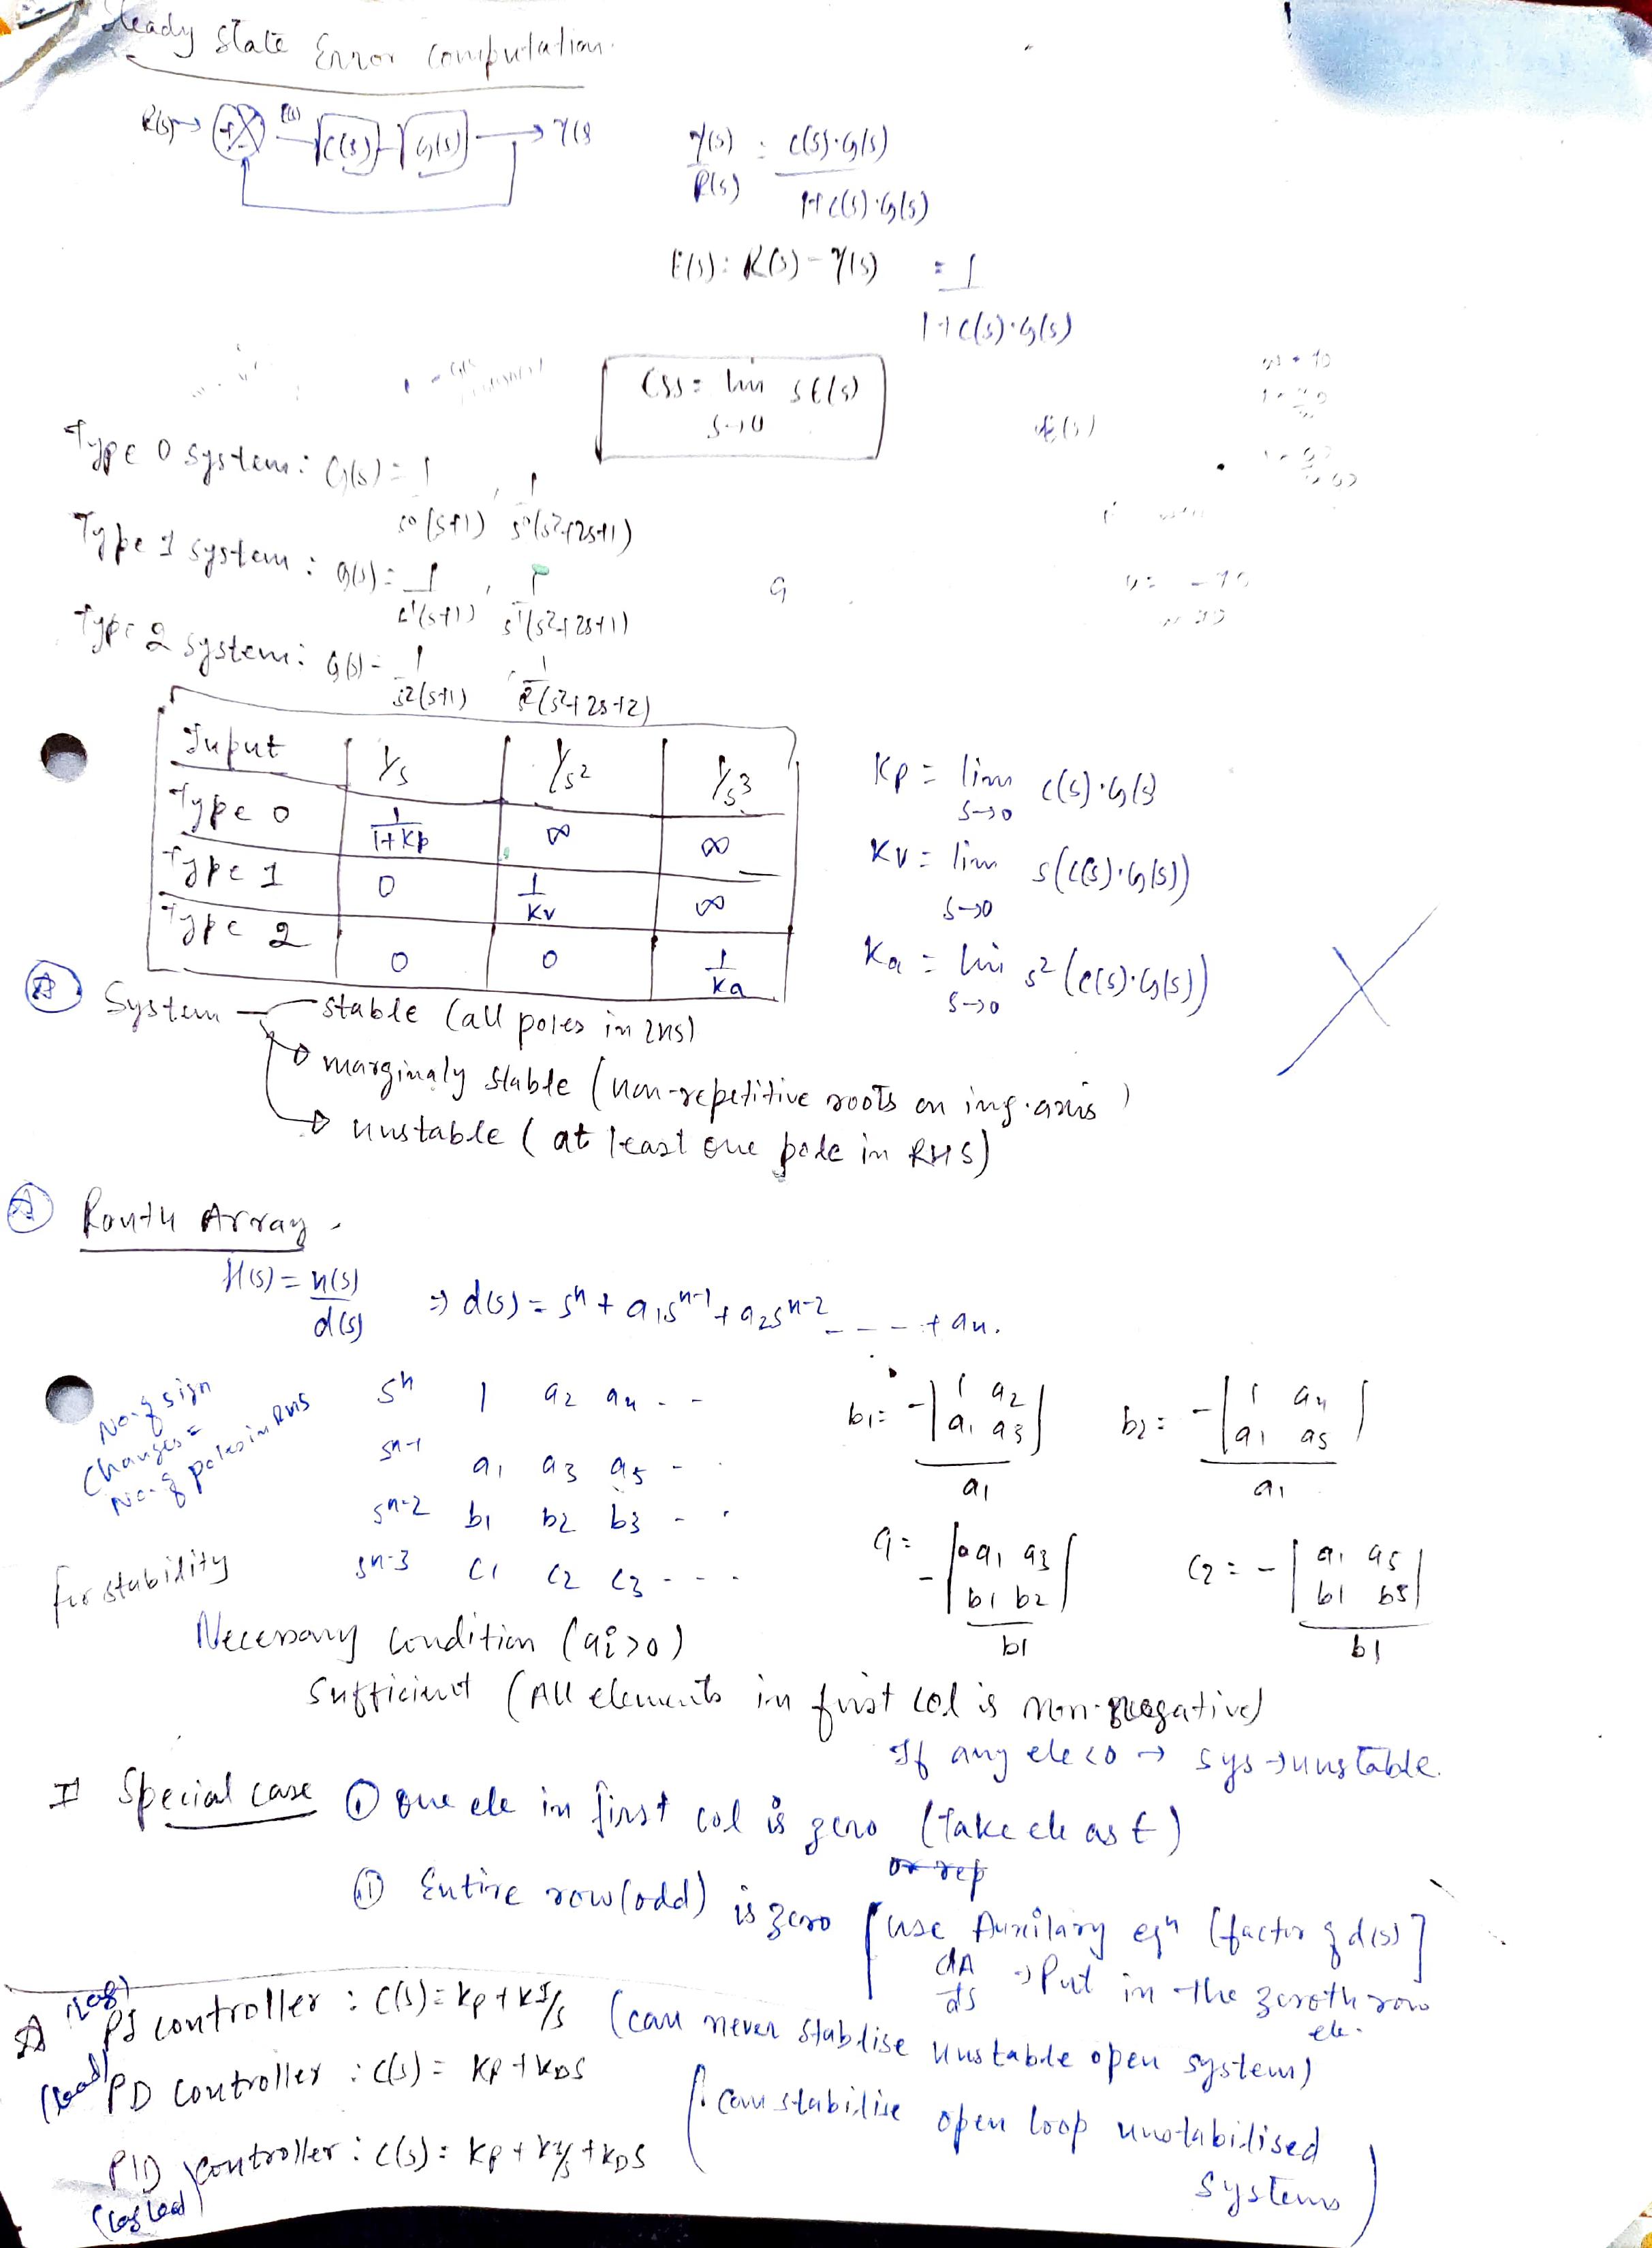 Steady State Error computation.
R(s) → + - E(s) C(s) G(s) → Y(s
Y(s)/R(s) = C(s)·G(s) / 1+C(s)·G(s)
E(s) : R(s) - Y(s) = 1 / 1+C(s)·G(s)
ess = lim s→0 sE(s)
Type 0 system : G(s) = 1/s0(s+1) , 1/s0(s2+2s+1)
Type 1 system : G(s) = 1/s1(s+1) , 1/s1(s2+2s+1)
Type 2 system : G(s) = 1/s2(s+1) , 1/s2(s2+2s+2)
Input 1/s 1/s2 1/s3
Type 0 1/1+Kp ∞ ∞
Type 1 0 1/Kv ∞
Type 2 0 0 1/Ka
Kp = lim s→0 C(s)·G(s)
Kv = lim s→0 s(C(s)·G(s))
Ka = lim s→0 s2(C(s)·G(s))
System stable (all poles in LHS)
marginaly stable (non-repetitive roots on img. axis)
unstable (at least one pole in RHS)
Routh Array.
H(s) = n(s)/d(s) ⇒ d(s) = sn + a1sn-1 + a2sn-2 - - - - + an.
No. of sign
changes =
No. of poles in RHS
sn 1 a2 a4 - -
sn-1 a1 a3 a5 - -
sn-2 b1 b2 b3 - -
sn-3 c1 c2 c3 - - -
b1 = -|1 a2 a1 a3| / a1
b2 = -|1 a4 a1 a5| / a1
c1 = -|a1 a3 b1 b2| / b1
c2 = -|a1 a5 b1 b3| / b1
for stability
Necessary condition (ai>0)
Sufficient (All elements in first col is non-negative)
If any ele<0 → sys→unstable.
I Special case (i) One ele in first col is zero (Take ele as ε)
or rep
(ii) Entire row(odd) is zero [use Auxilary eqn (factor of d(s)]
dA/ds → Put in the zeroth row
ele.
(Lag) PI controller : C(s) = Kp + KI/s (can never stablise unstable open system)
(lead) PD controller : C(s) = KP + KDS
(can stabilise open loop unstabilised
systems)
PID controller : C(s) = KP + KI/s + KDS
(Lag lead)